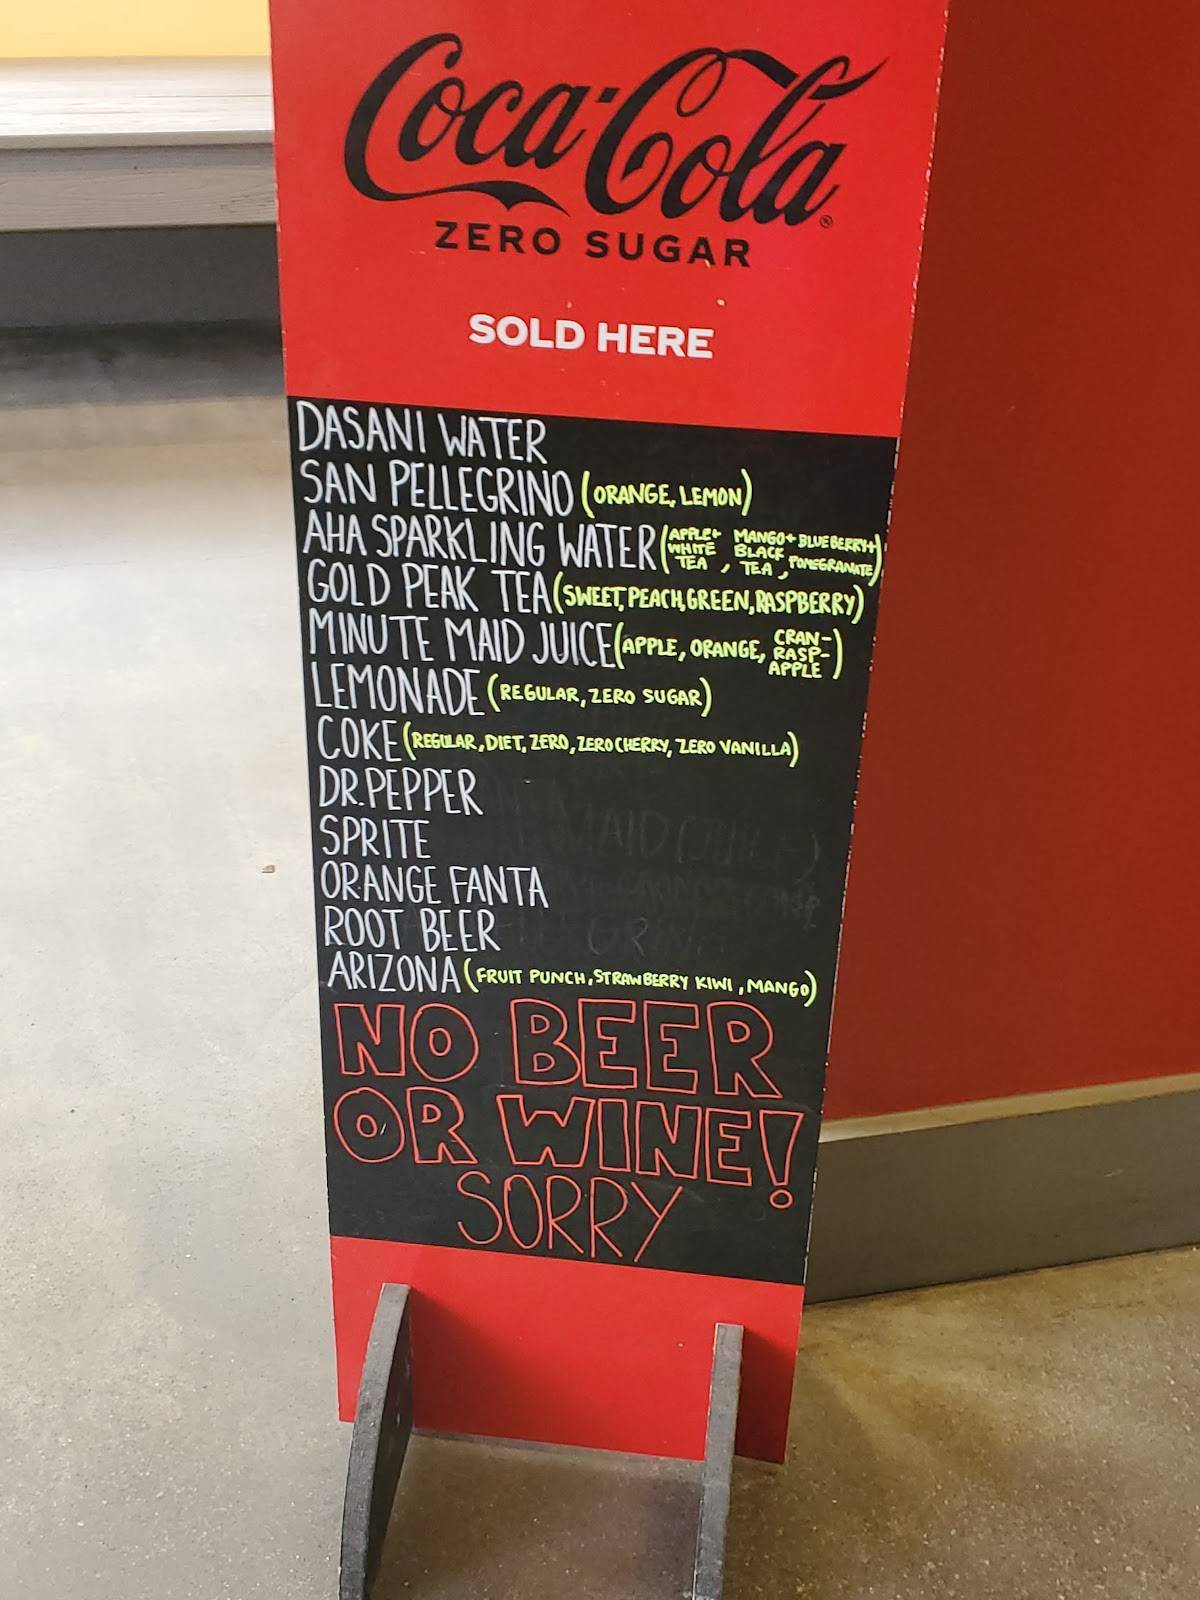 Coca-Cola®
ZERO SUGAR
SOLD HERE
DASANI WATER
SAN PELLEGRINO (ORANGE, LEMON)
AHA SPARKLING WATER (APPLE+ WHITE TEA, MANGO+ BLACK TEA, BLUEBERRY+ POMEGRANATE)
GOLD PEAK TEA (SWEET, PEACH, GREEN, RASPBERRY)
MINUTE MAID JUICE (APPLE, ORANGE, CRAN-RASP-APPLE)
LEMONADE (REGULAR, ZERO SUGAR)
COKE (REGULAR, DIET, ZERO, ZERO CHERRY, ZERO VANILLA)
DR. PEPPER
SPRITE
ORANGE FANTA
ROOT BEER
ARIZONA (FRUIT PUNCH, STRAWBERRY KIWI, MANGO)
NO BEER
OR WINE!
SORRY